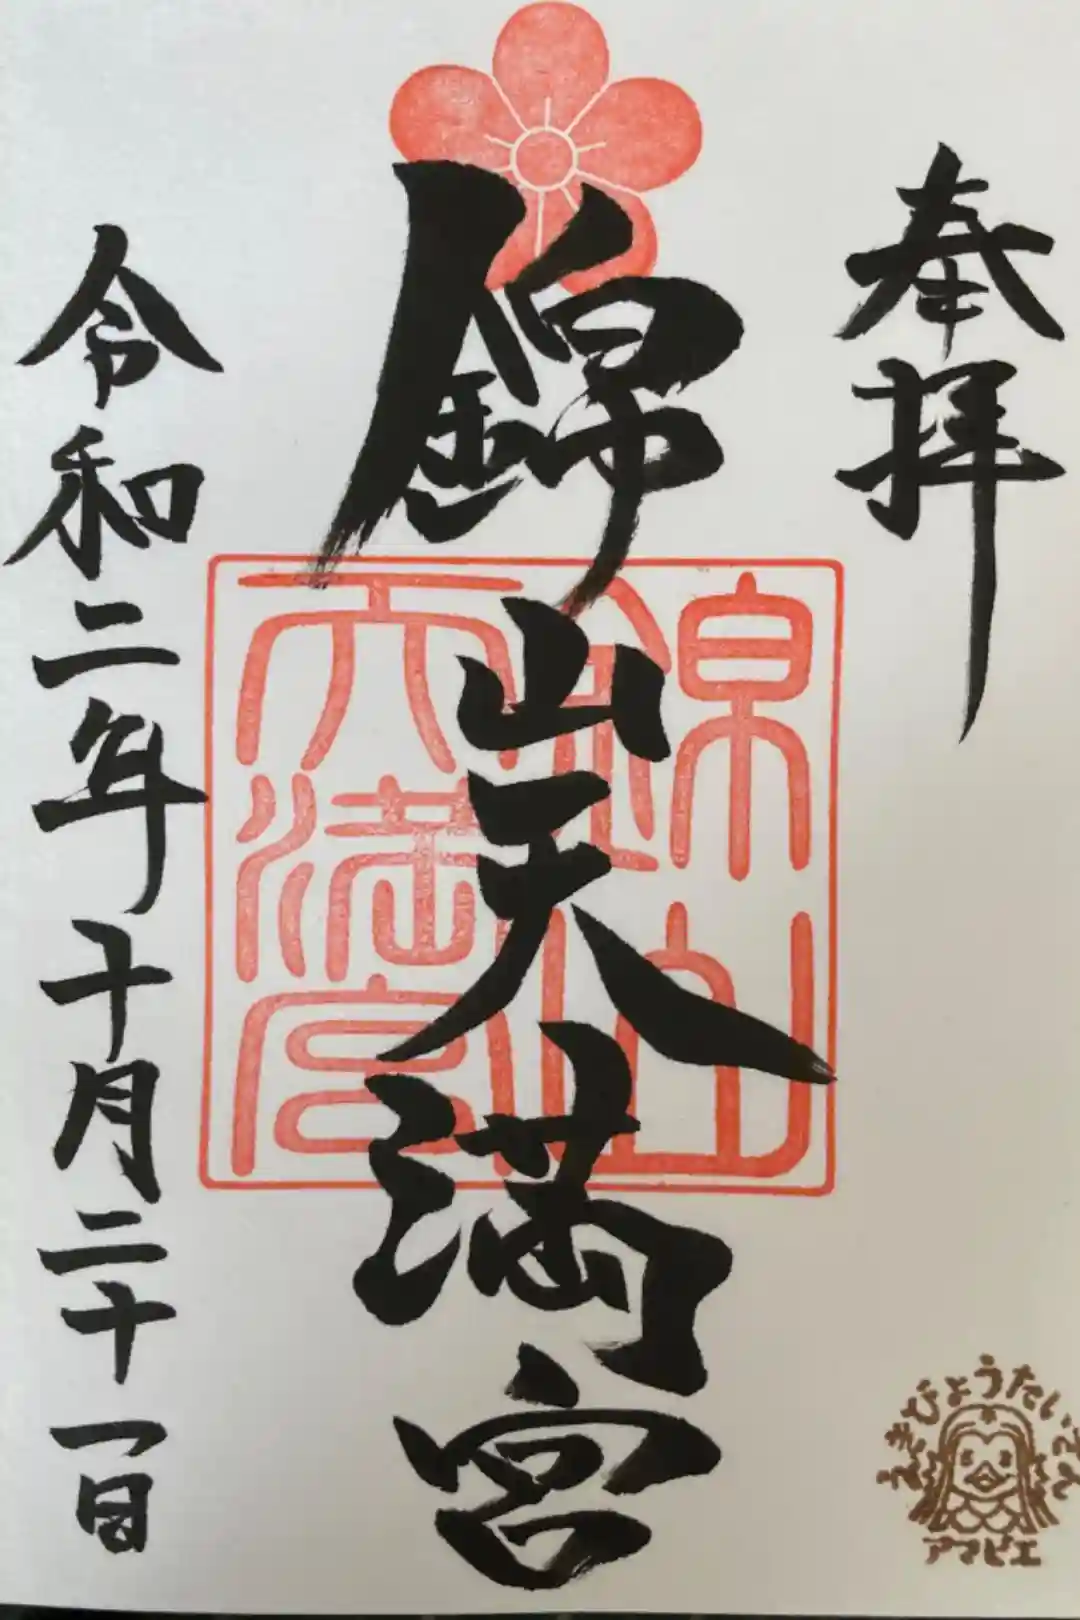 奉拝
錦山天満宮
錦山
天満宮
令和二年十月二十一日
えきびょうたいさん
アマビエ